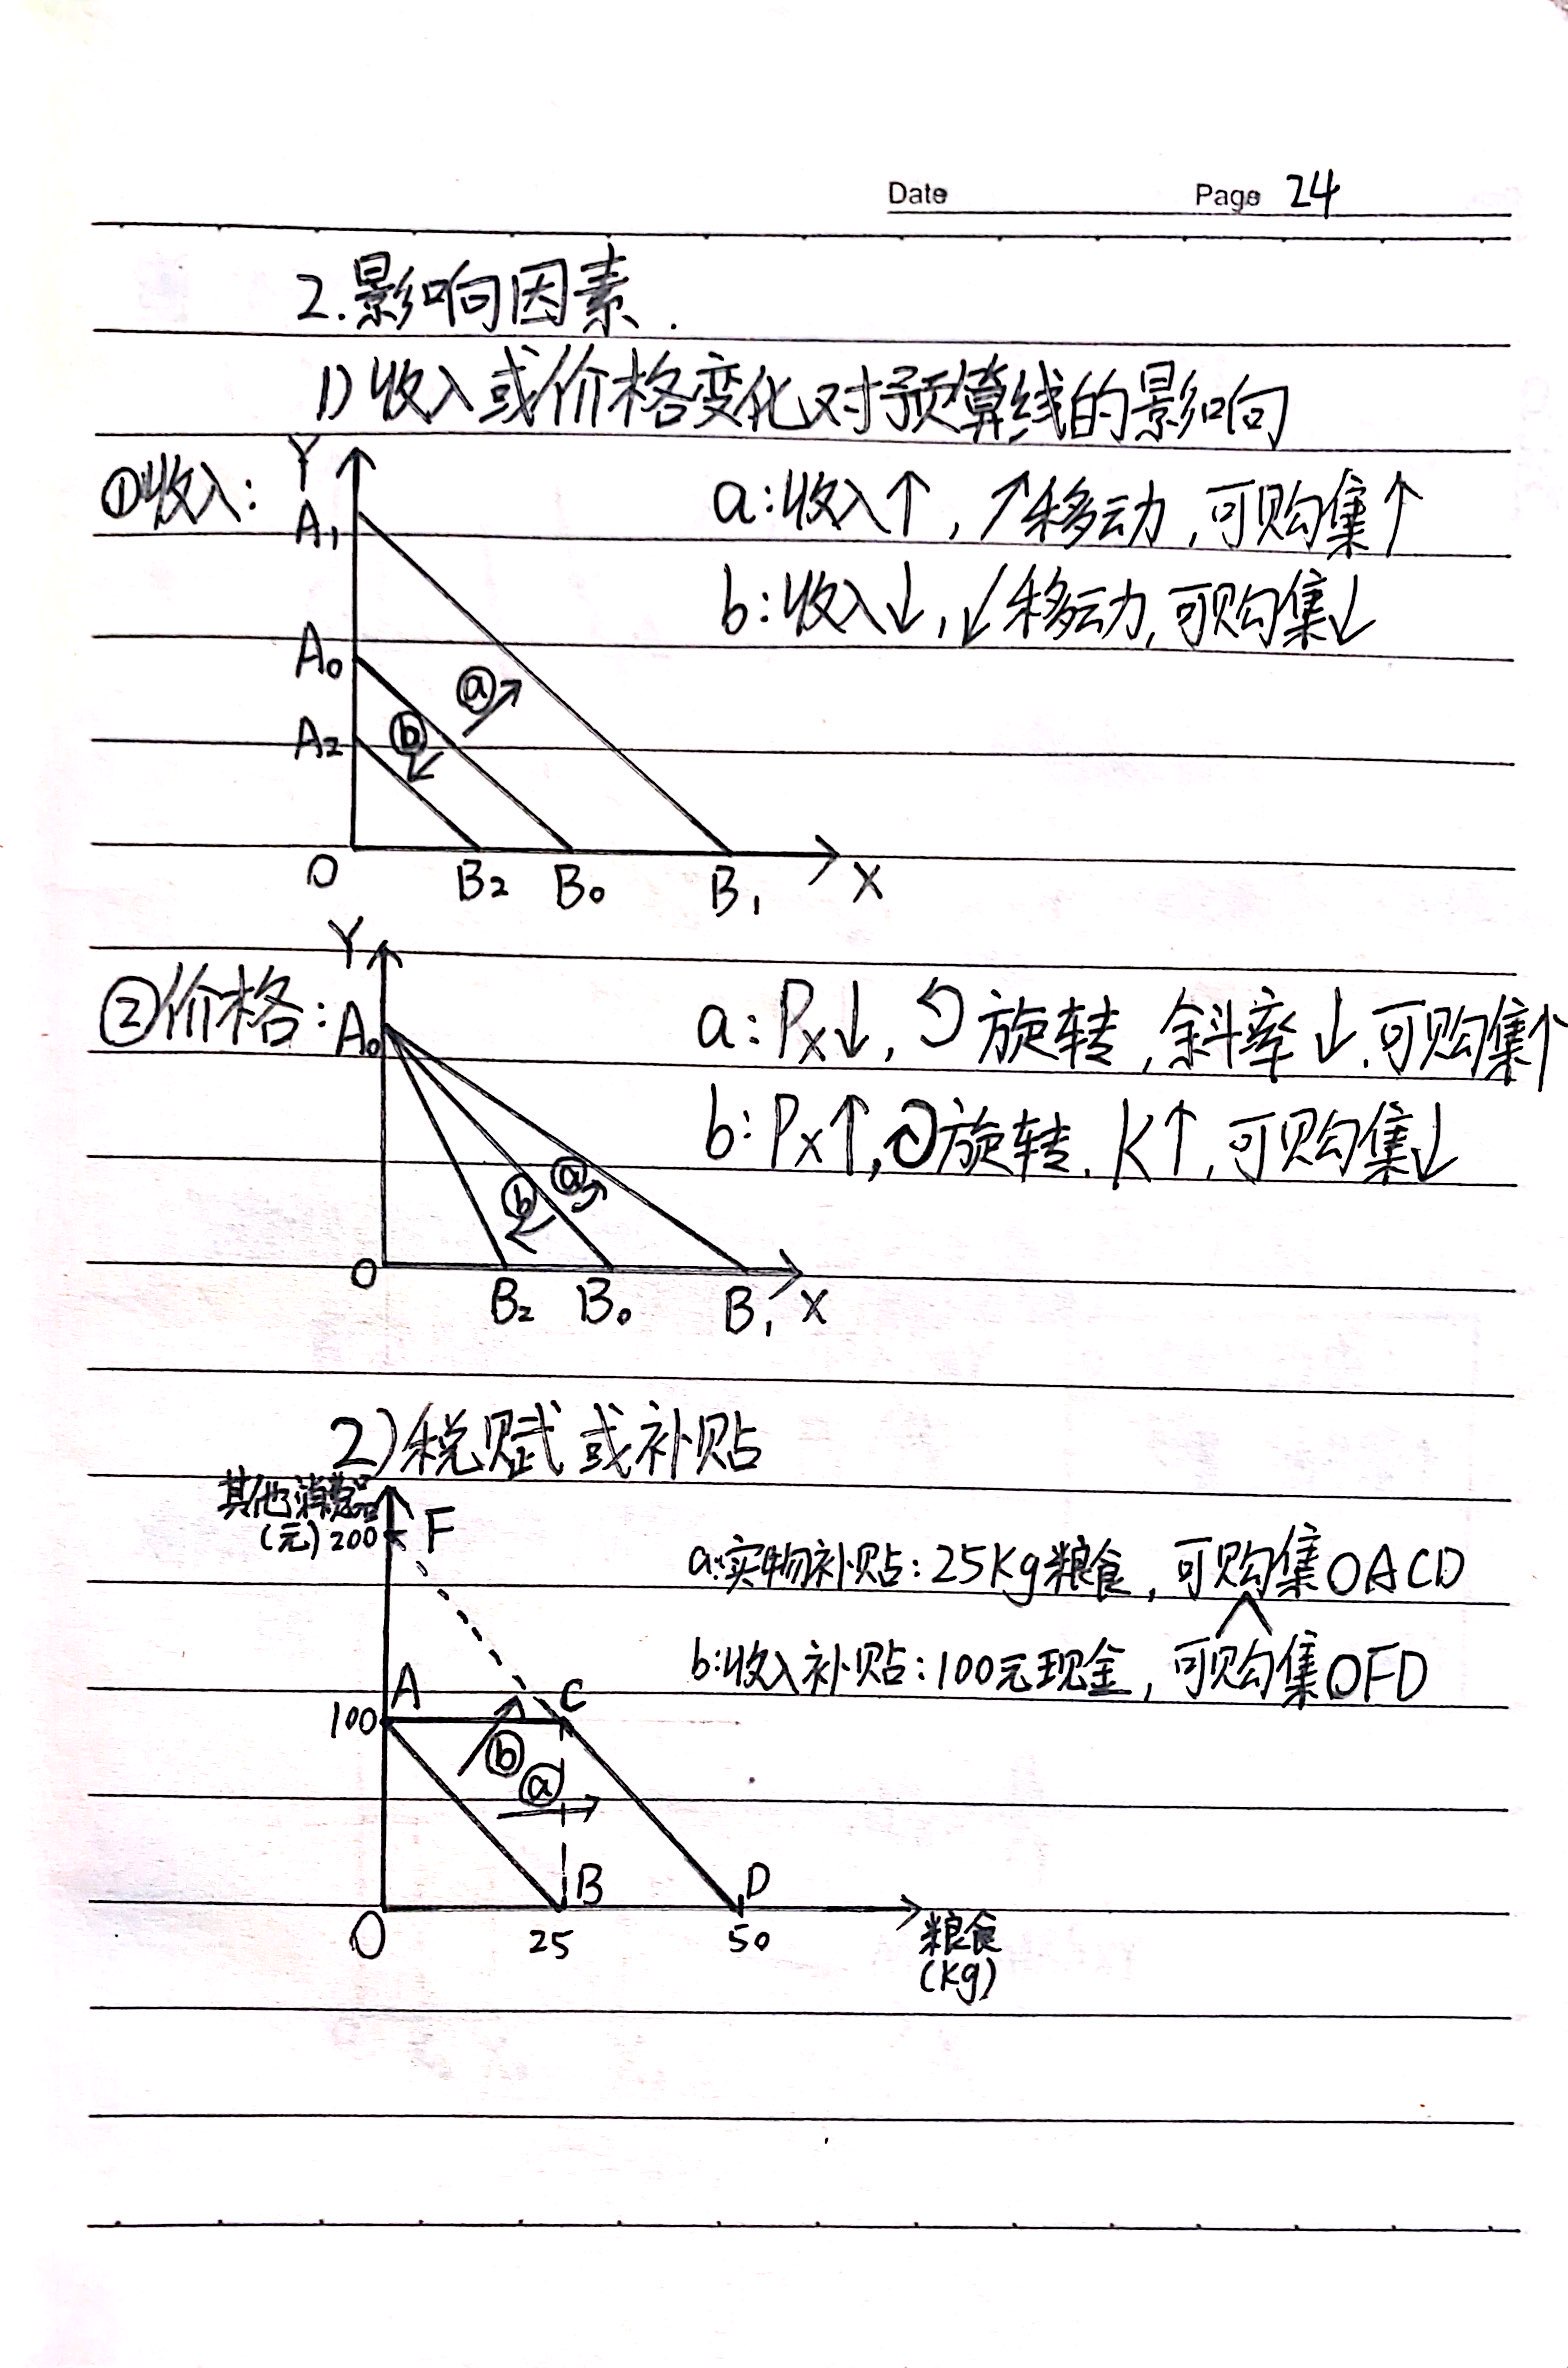 Date Page 24
2.影响因素.
1)收入或价格变化对预算线的影响
①收入:
Y
A₁
A₀
A₂
ⓐ
ⓑ
O B₂ B₀ B₁ X
a:收入↑,↗移动,可购集↑
b:收入↓,↙移动,可购集↓
②价格:
Y
A₀
ⓑ ⓐ
O B₂ B₀ B₁ X
a:Px↓,↺旋转,斜率↓,可购集↑
b:Px↑,↻旋转,K↑,可购集↓
2)税赋或补贴
其他消费品
(元)200 F
A C
100
ⓑ
ⓐ
B D
O 25 50 粮食
(Kg)
a:实物补贴:25Kg粮食,可购集OACD
∧
b:收入补贴:100元现金,可购集OFD